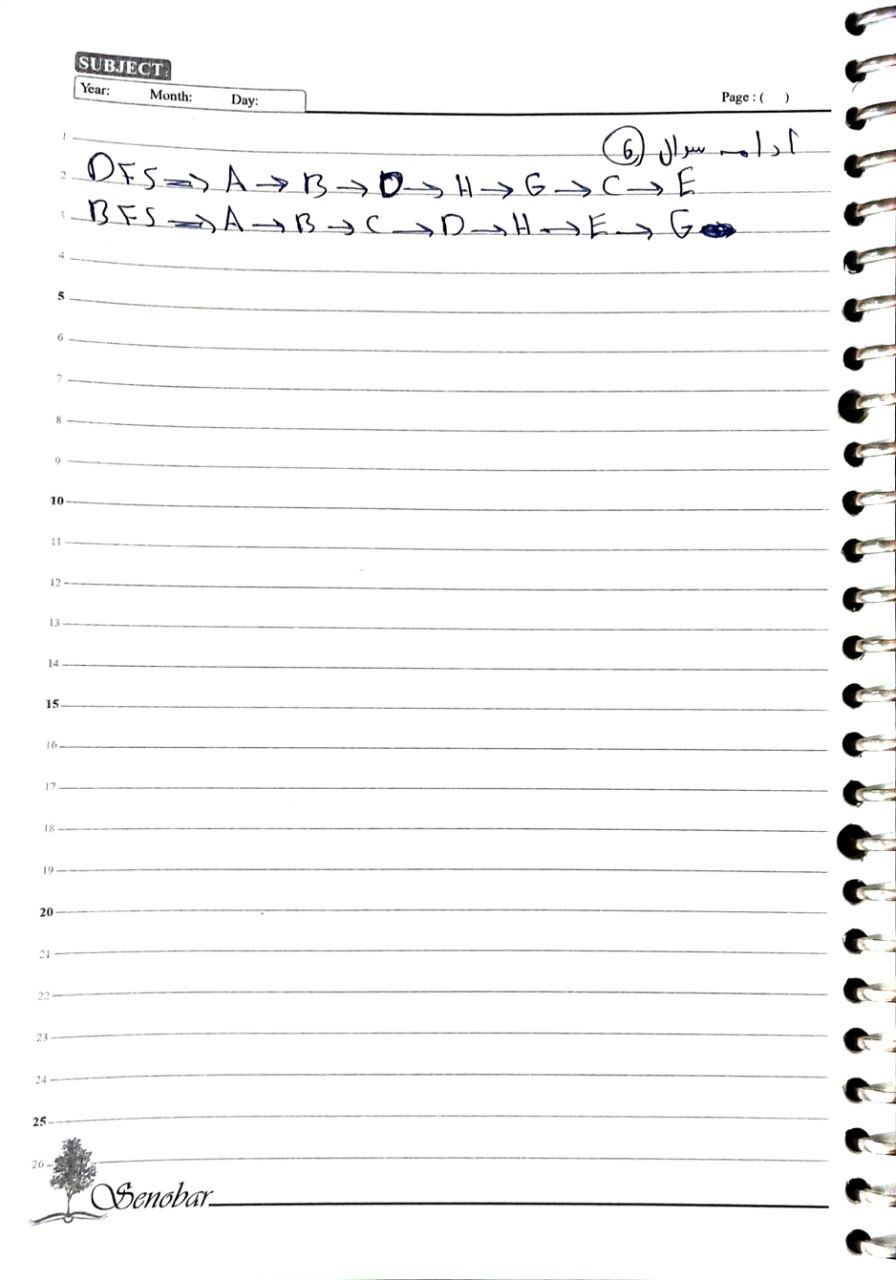 SUBJECT:
Year: Month: Day: Page : ( )
ادامه سوال 6
1
2 DFS ⇒ A → B → D → H → G → C → E
3 BFS ⇒ A → B → C → D → H → E → G
4
5
6
7
8
9
10
11
12
13
14
15
16
17
18
19
20
21
22
23
24
25
26
Senobar